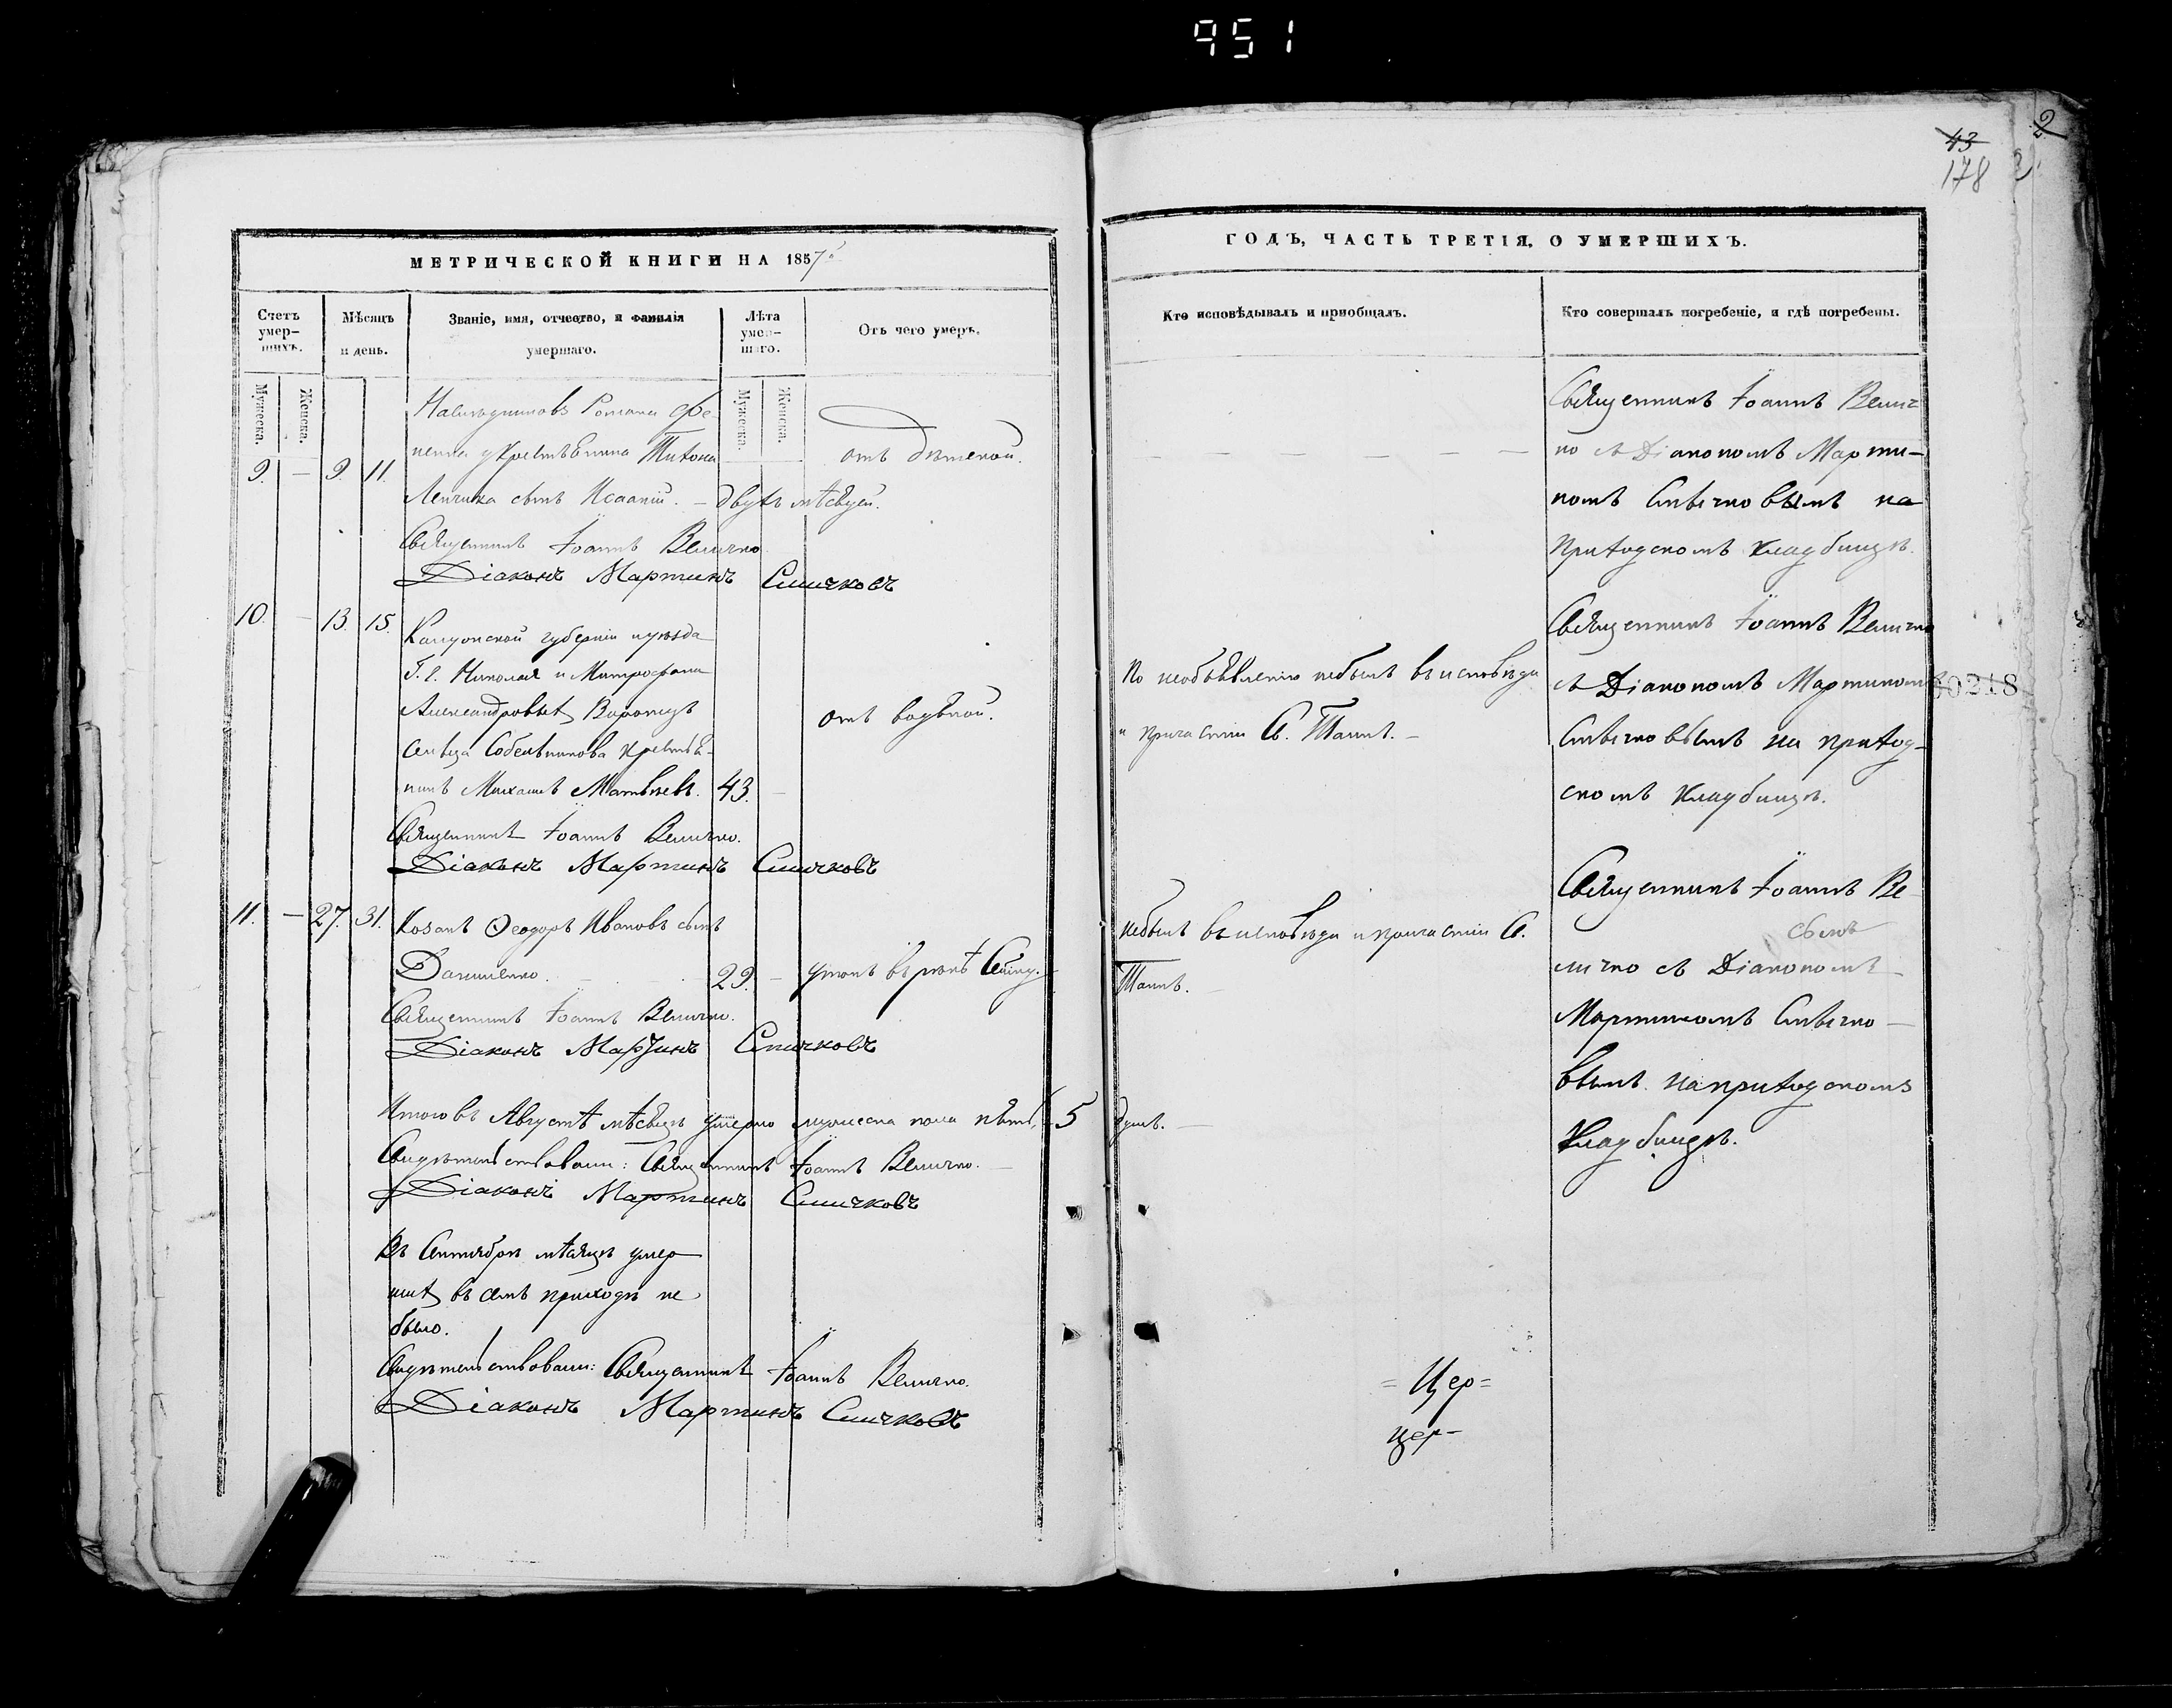 951
43
2
178
2
МЕТРИЧЕСКОЙ КНИГИ НА 1857й
Счетъ умер-шихъ.
Мѣсяцъ и день.
Званіе, имя, отчество, и фамилія умершаго.
Лѣта умер-шаго.
Отъ чего умеръ.
Мужеска.
Женска.
Мужеска.
Женска.
Наслѣдниковъ Романа
крестьянина Тихона
9. — 9. 11.
сынъ Исаакій. — двухъ мѣсяцей.
отъ дѣтской.
Священникъ Іоаннъ Величко
Діаконъ Мартинъ Спичковъ
10. — 13. 15.
губерніи и уѣзда
Г. г. Николая и Митрофана
Александровыхъ
сельца крестья-
нинъ Михаилъ Матвѣевъ. 43. —
отъ водяной.
Священникъ Іоаннъ Величко.
Діаконъ Мартинъ Спичковъ
11. — 27. 31. Козакъ Ѳеодоръ Ивановъ сынъ
Даниленко. 29. — утонъ въ рекѣ
Священникъ Іоаннъ Величко.
Діаконъ Мартинъ Спичковъ
Итого въ Августѣ мѣсяцѣ умерло мужеска пола пять, 5 душъ. —
Свидѣтельствовали: Священникъ Іоаннъ Величко. —
Діаконъ Мартинъ Спичковъ
Въ Сентябрѣ мѣсяцѣ умер-
шихъ въ семъ приходѣ не
было.
Свидѣтельствовали: Священникъ Іоаннъ Величко.
Діаконъ Мартинъ Спичковъ
ГОДЪ, ЧАСТЬ ТРЕТІЯ, О УМЕРШИХЪ.
Кто исповѣдывалъ и пріобщалъ.
Кто совершалъ погребеніе, и гдѣ погребены.
Священникъ Іоаннъ Велич-
ко съ Діакономъ Марти-
номъ Спичковымъ на
приходскомъ кладбищѣ.
По необъявленію небылъ въ исповѣди
и причастіи С. Таинъ. —
Священникъ Іоаннъ Величко
съ Діакономъ Мартиномъ
Спичковымъ на приход-
скомъ кладбищѣ.
40218
небылъ въ исповѣди и причастіи С.
Таинъ. —
Священникъ Іоаннъ Ве-
личко съ Діакономъ
Мартиномъ Спичко-
вымъ на приходскомъ
кладбищѣ.
= Цер=
цер-